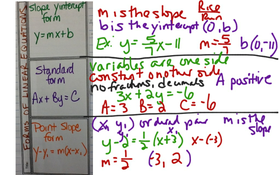 FORMS OF LINEAR EQUATIONS
Slope yintercept
form
y=mx+b
m is the slope Rise
Run
b is the yintercept (0,b)
Ex. y = 5/7 x - 11 m = 5/7 b(0,-11)
Standard
form
Ax + By = C
variables are one side
constant on other side
no fractions, decimals
A positive
3x + 2y = -6
A = 3 B = 2 C = -6
Point Slope
form
y-y₁ = m(x-x₁)
(x₁, y₁) ordered pair
m is the
slope
y - 2 = 1/2 (x+3) x-(-3)
m = 1/2 (-3, 2)